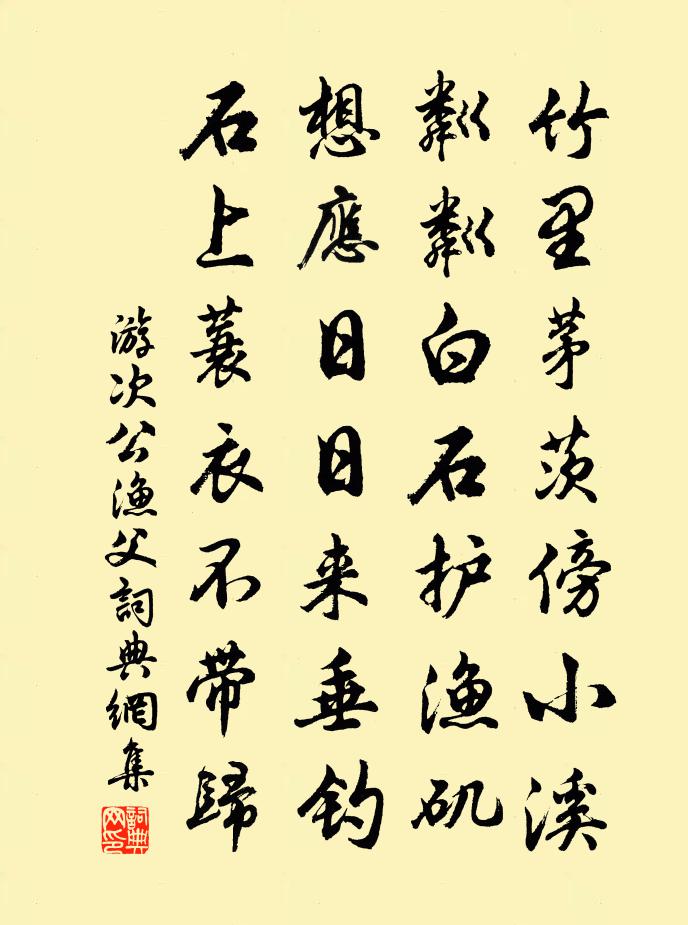 竹里茅茨傍小溪
粼粼白石护渔矶
想應日日来垂钓
石上蓑衣不带歸
游次公渔父詞典網集
詞典网印